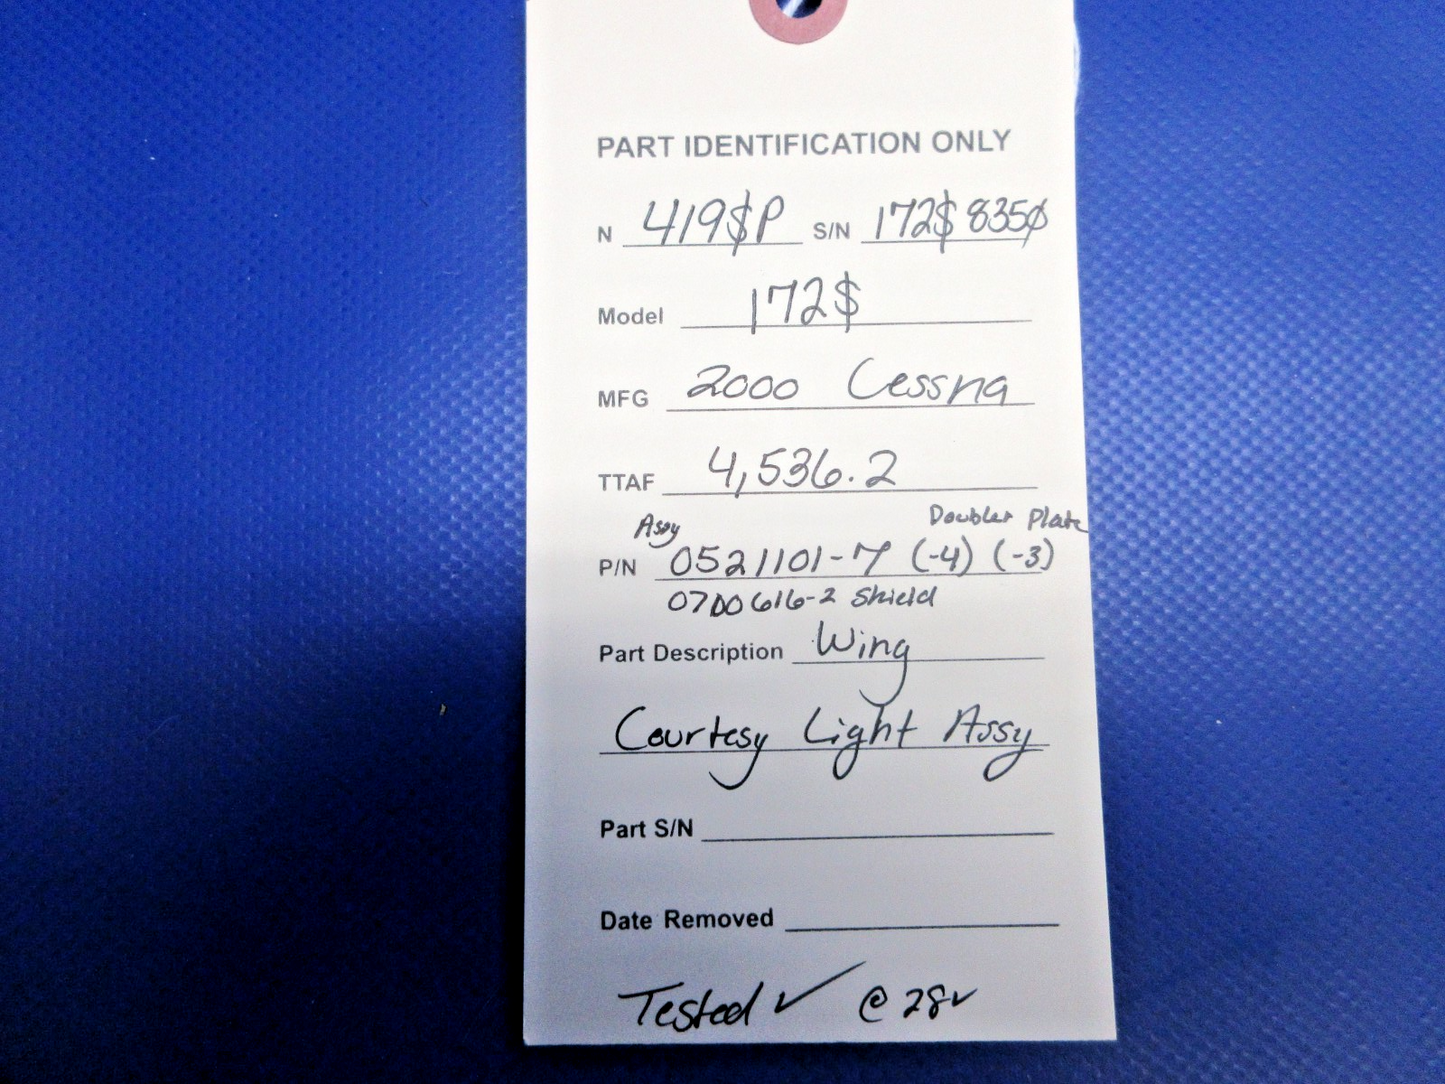 PART IDENTIFICATION ONLY
N 419$P S/N 172$ 835Ø
Model 172$
MFG 2000 Cessna
TTAF 4,536.2
Assy Doubler Plate
P/N 0521101-7 (-4) (-3)
0700616-2 Shield
Part Description Wing
Courtesy Light Assy
Part S/N
Date Removed
Tested ✓ @ 28v